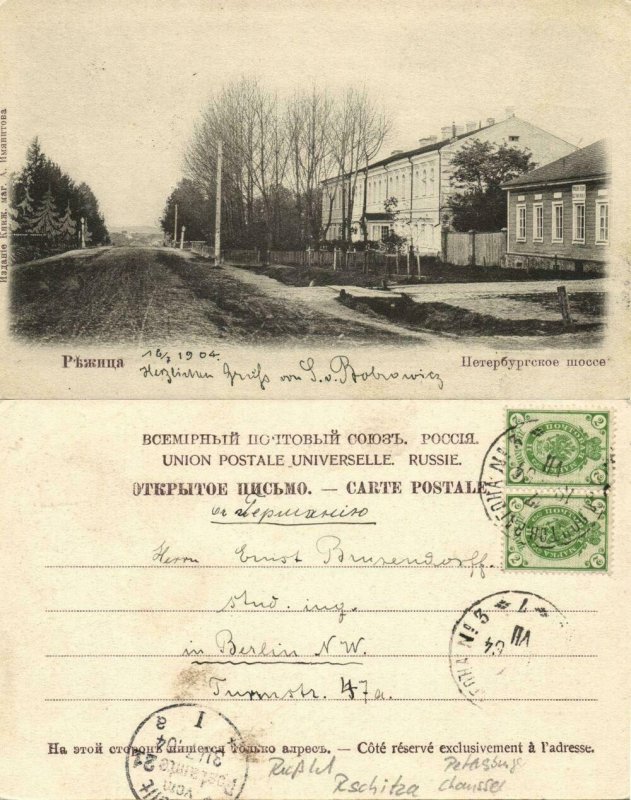 Изданіе Книж. маг. А. Иманитова
Рѣжица
16/7 1904.
Herzlichen Gruß von S. v. Bobrowicz
Петербургское шоссе
ВСЕМІРНЫЙ ПОЧТОВЫЙ СОЮЗЪ. РОССІЯ.
UNION POSTALE UNIVERSELLE. RUSSIE.
ОТКРЫТОЕ ПИСЬМО. — CARTE POSTALE
въ Германію
Herrn Ernst Brusendorff.
stud. ing.
in Berlin N.W.
Turmstr. 47a.
2 2
2 2
№ 3
VII
04
1
На этой сторонѣ пишется только адресъ. — Côté réservé exclusivement à l'adresse.
Rußld
Rschitza
Petersburg
chaussee